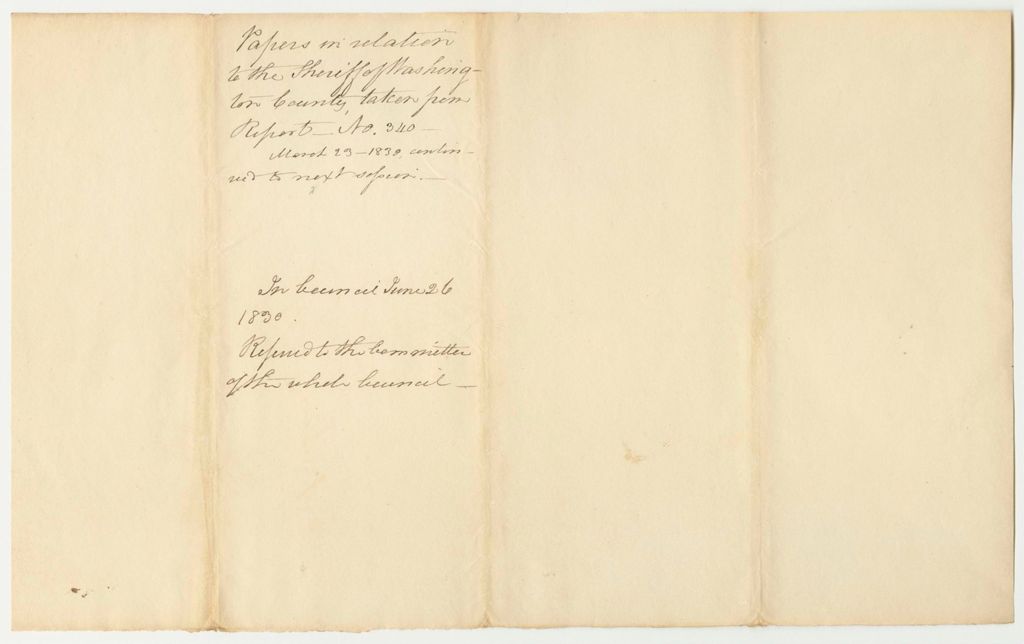 Papers in relation
to the Sheriff of Washing-
ton County, taken from
Report - No. 340 -
March 23 - 1830, contin-
ued to next session. -
In Council June 26
1830.
Referred to the Committee
of the whole Council -